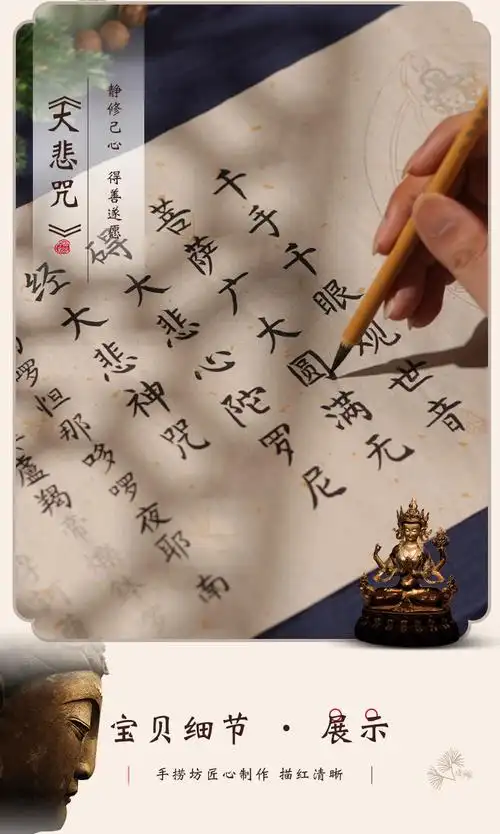 《大悲咒》
静修己心 得善遂愿
千手千眼观世音
菩萨广大圆满无
碍大悲心陀罗尼
经大悲神咒
啰怛那哆啰夜耶南
盧羯帝
宝贝细节·展示
手捞坊匠心制作 描红清晰